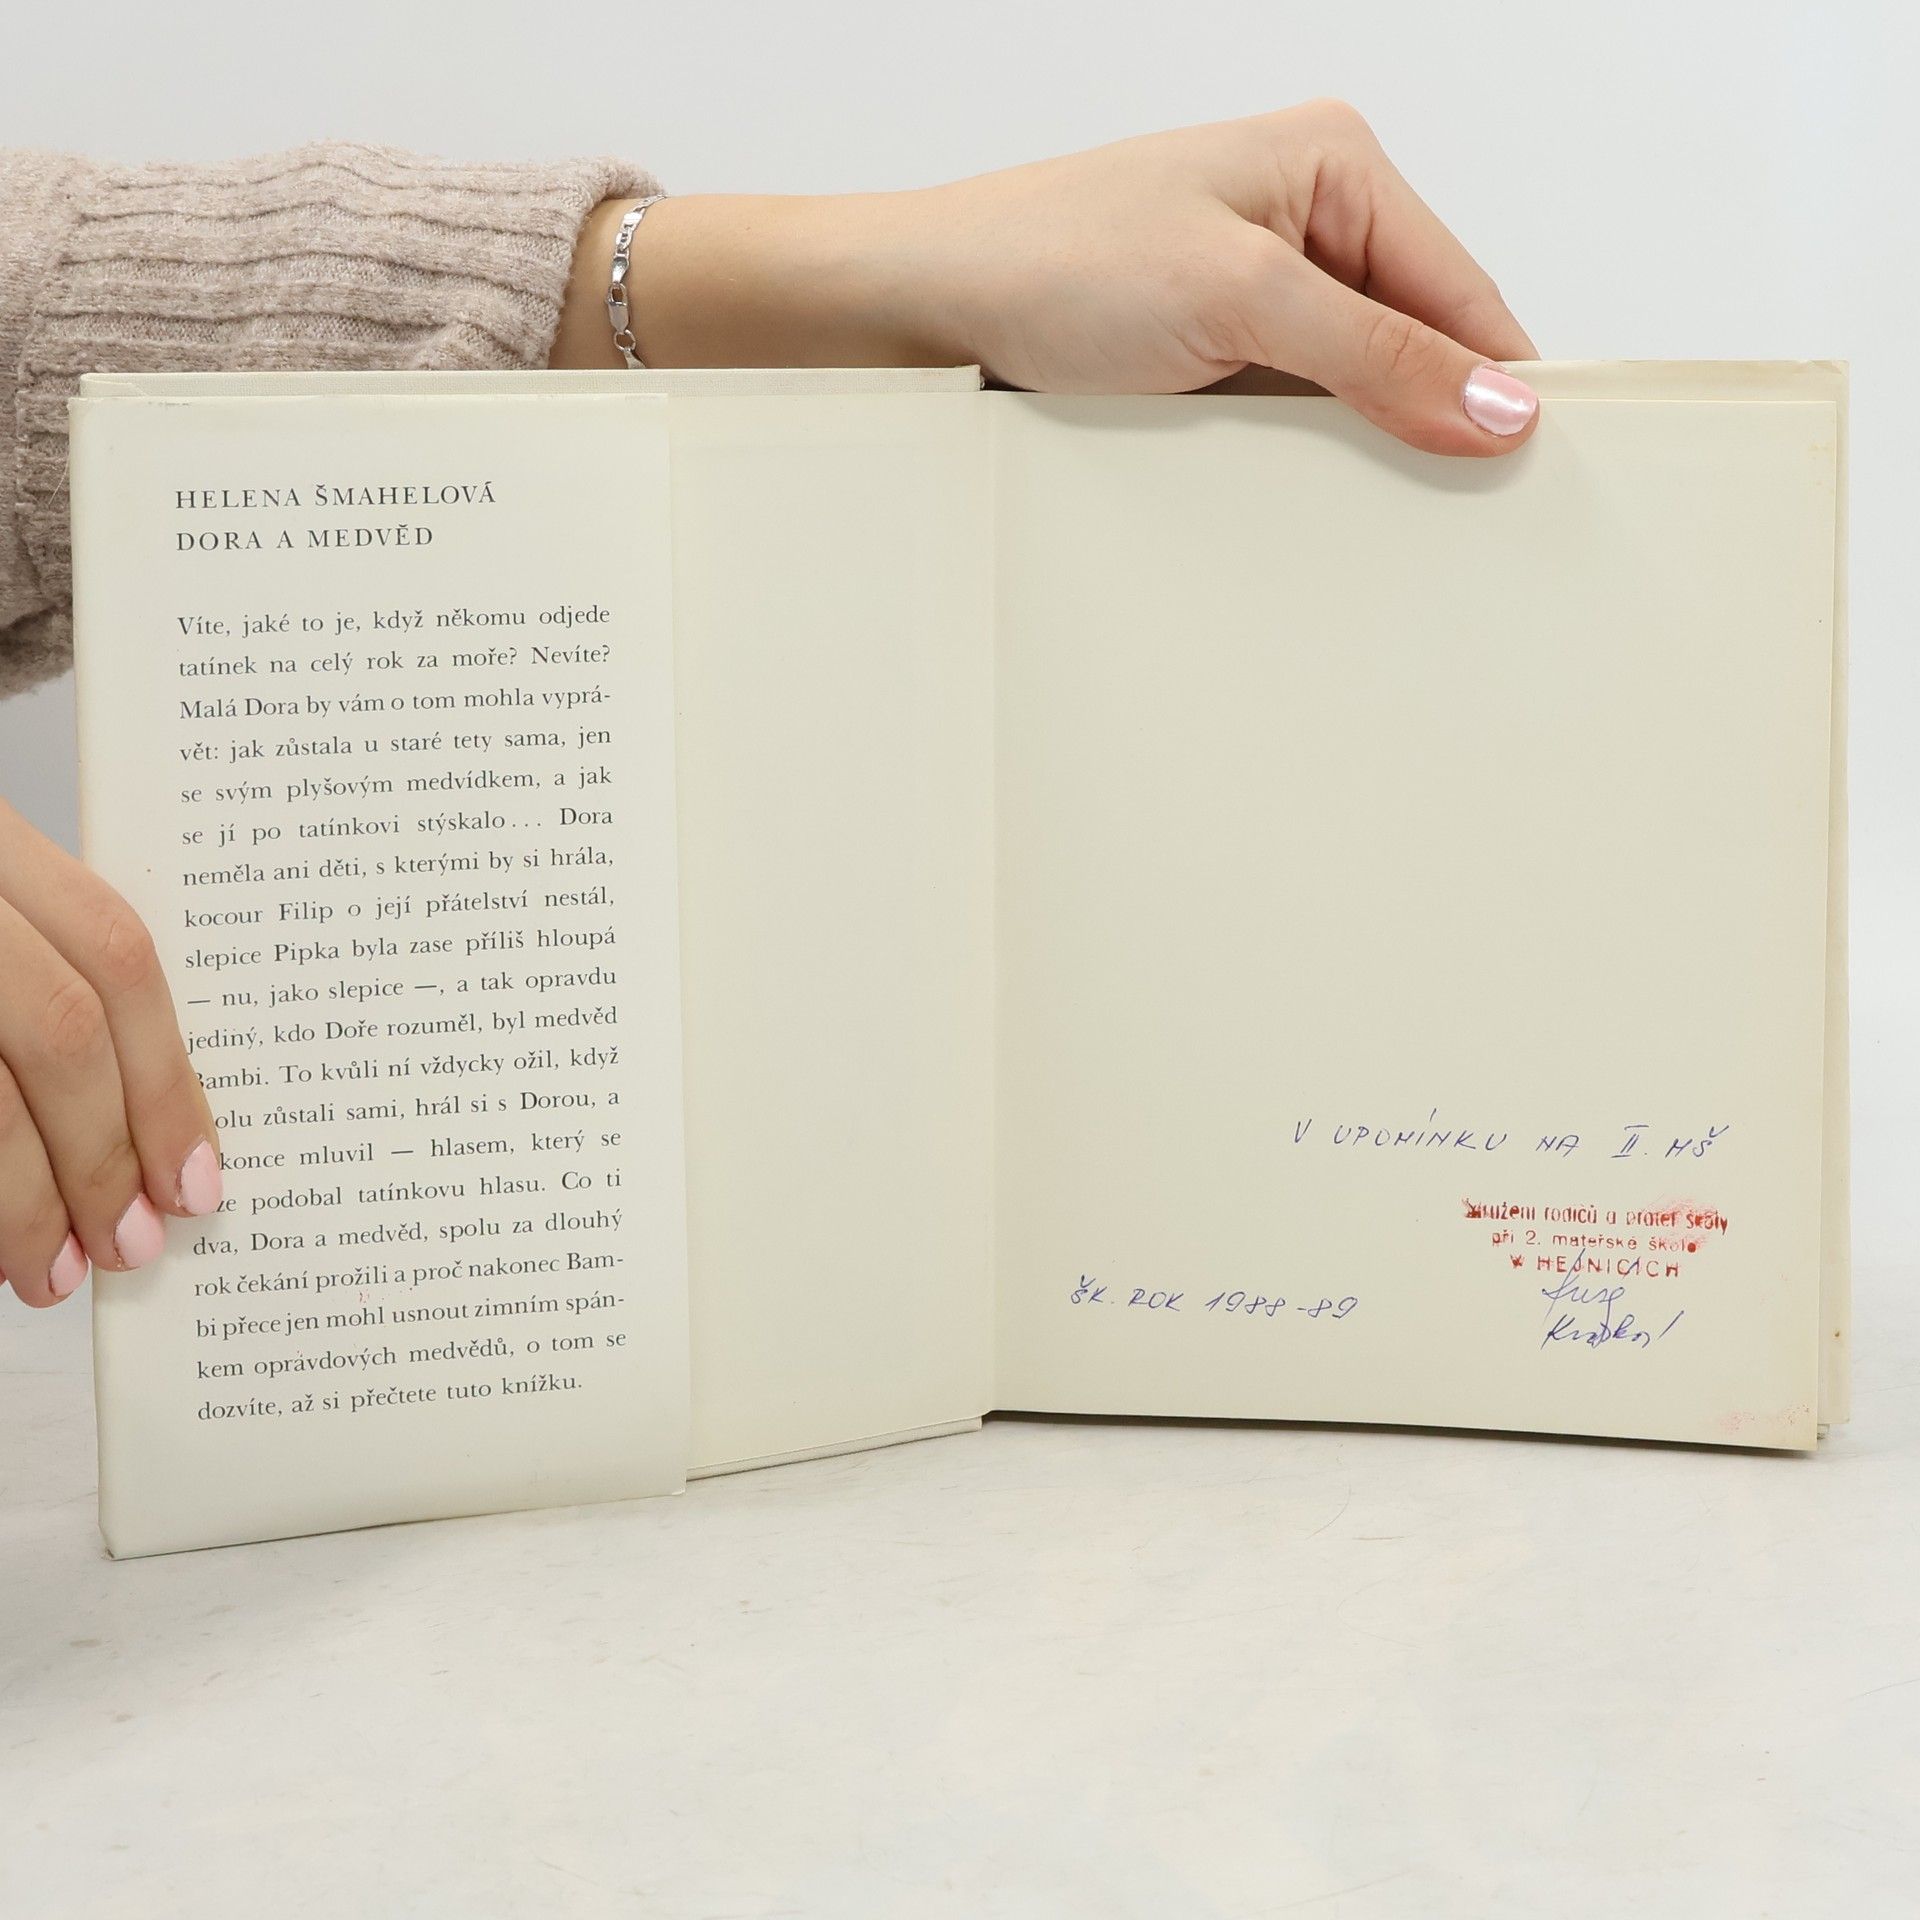 HELENA ŠMAHELOVÁ
DORA A MEDVĚD
Víte, jaké to je, když někomu odjede
tatínek na celý rok za moře? Nevíte?
Malá Dora by vám o tom mohla vyprá-
vět: jak zůstala u staré tety sama, jen
se svým plyšovým medvídkem, a jak
se jí po tatínkovi stýskalo... Dora
neměla ani děti, s kterými by si hrála,
kocour Filip o její přátelství nestál,
slepice Pipka byla zase příliš hloupá
— nu, jako slepice —, a tak opravdu
jediný, kdo Doře rozuměl, byl medvěd
Bambi. To kvůli ní vždycky ožil, když
olu zůstali sami, hrál si s Dorou, a
konce mluvil — hlasem, který se
ze podobal tatínkovu hlasu. Co ti
dva, Dora a medvěd, spolu za dlouhý
rok čekání prožili a proč nakonec Bam-
bi přece jen mohl usnout zimním spán-
kem opravdových medvědů, o tom se
dozvíte, až si přečtete tuto knížku.
V UPOMÍNKU NA II. MŠ
Sdružení rodičů a přátel školy
při 2. mateřské škole
V HEJNICÍCH
ŠK. ROK 1988-89